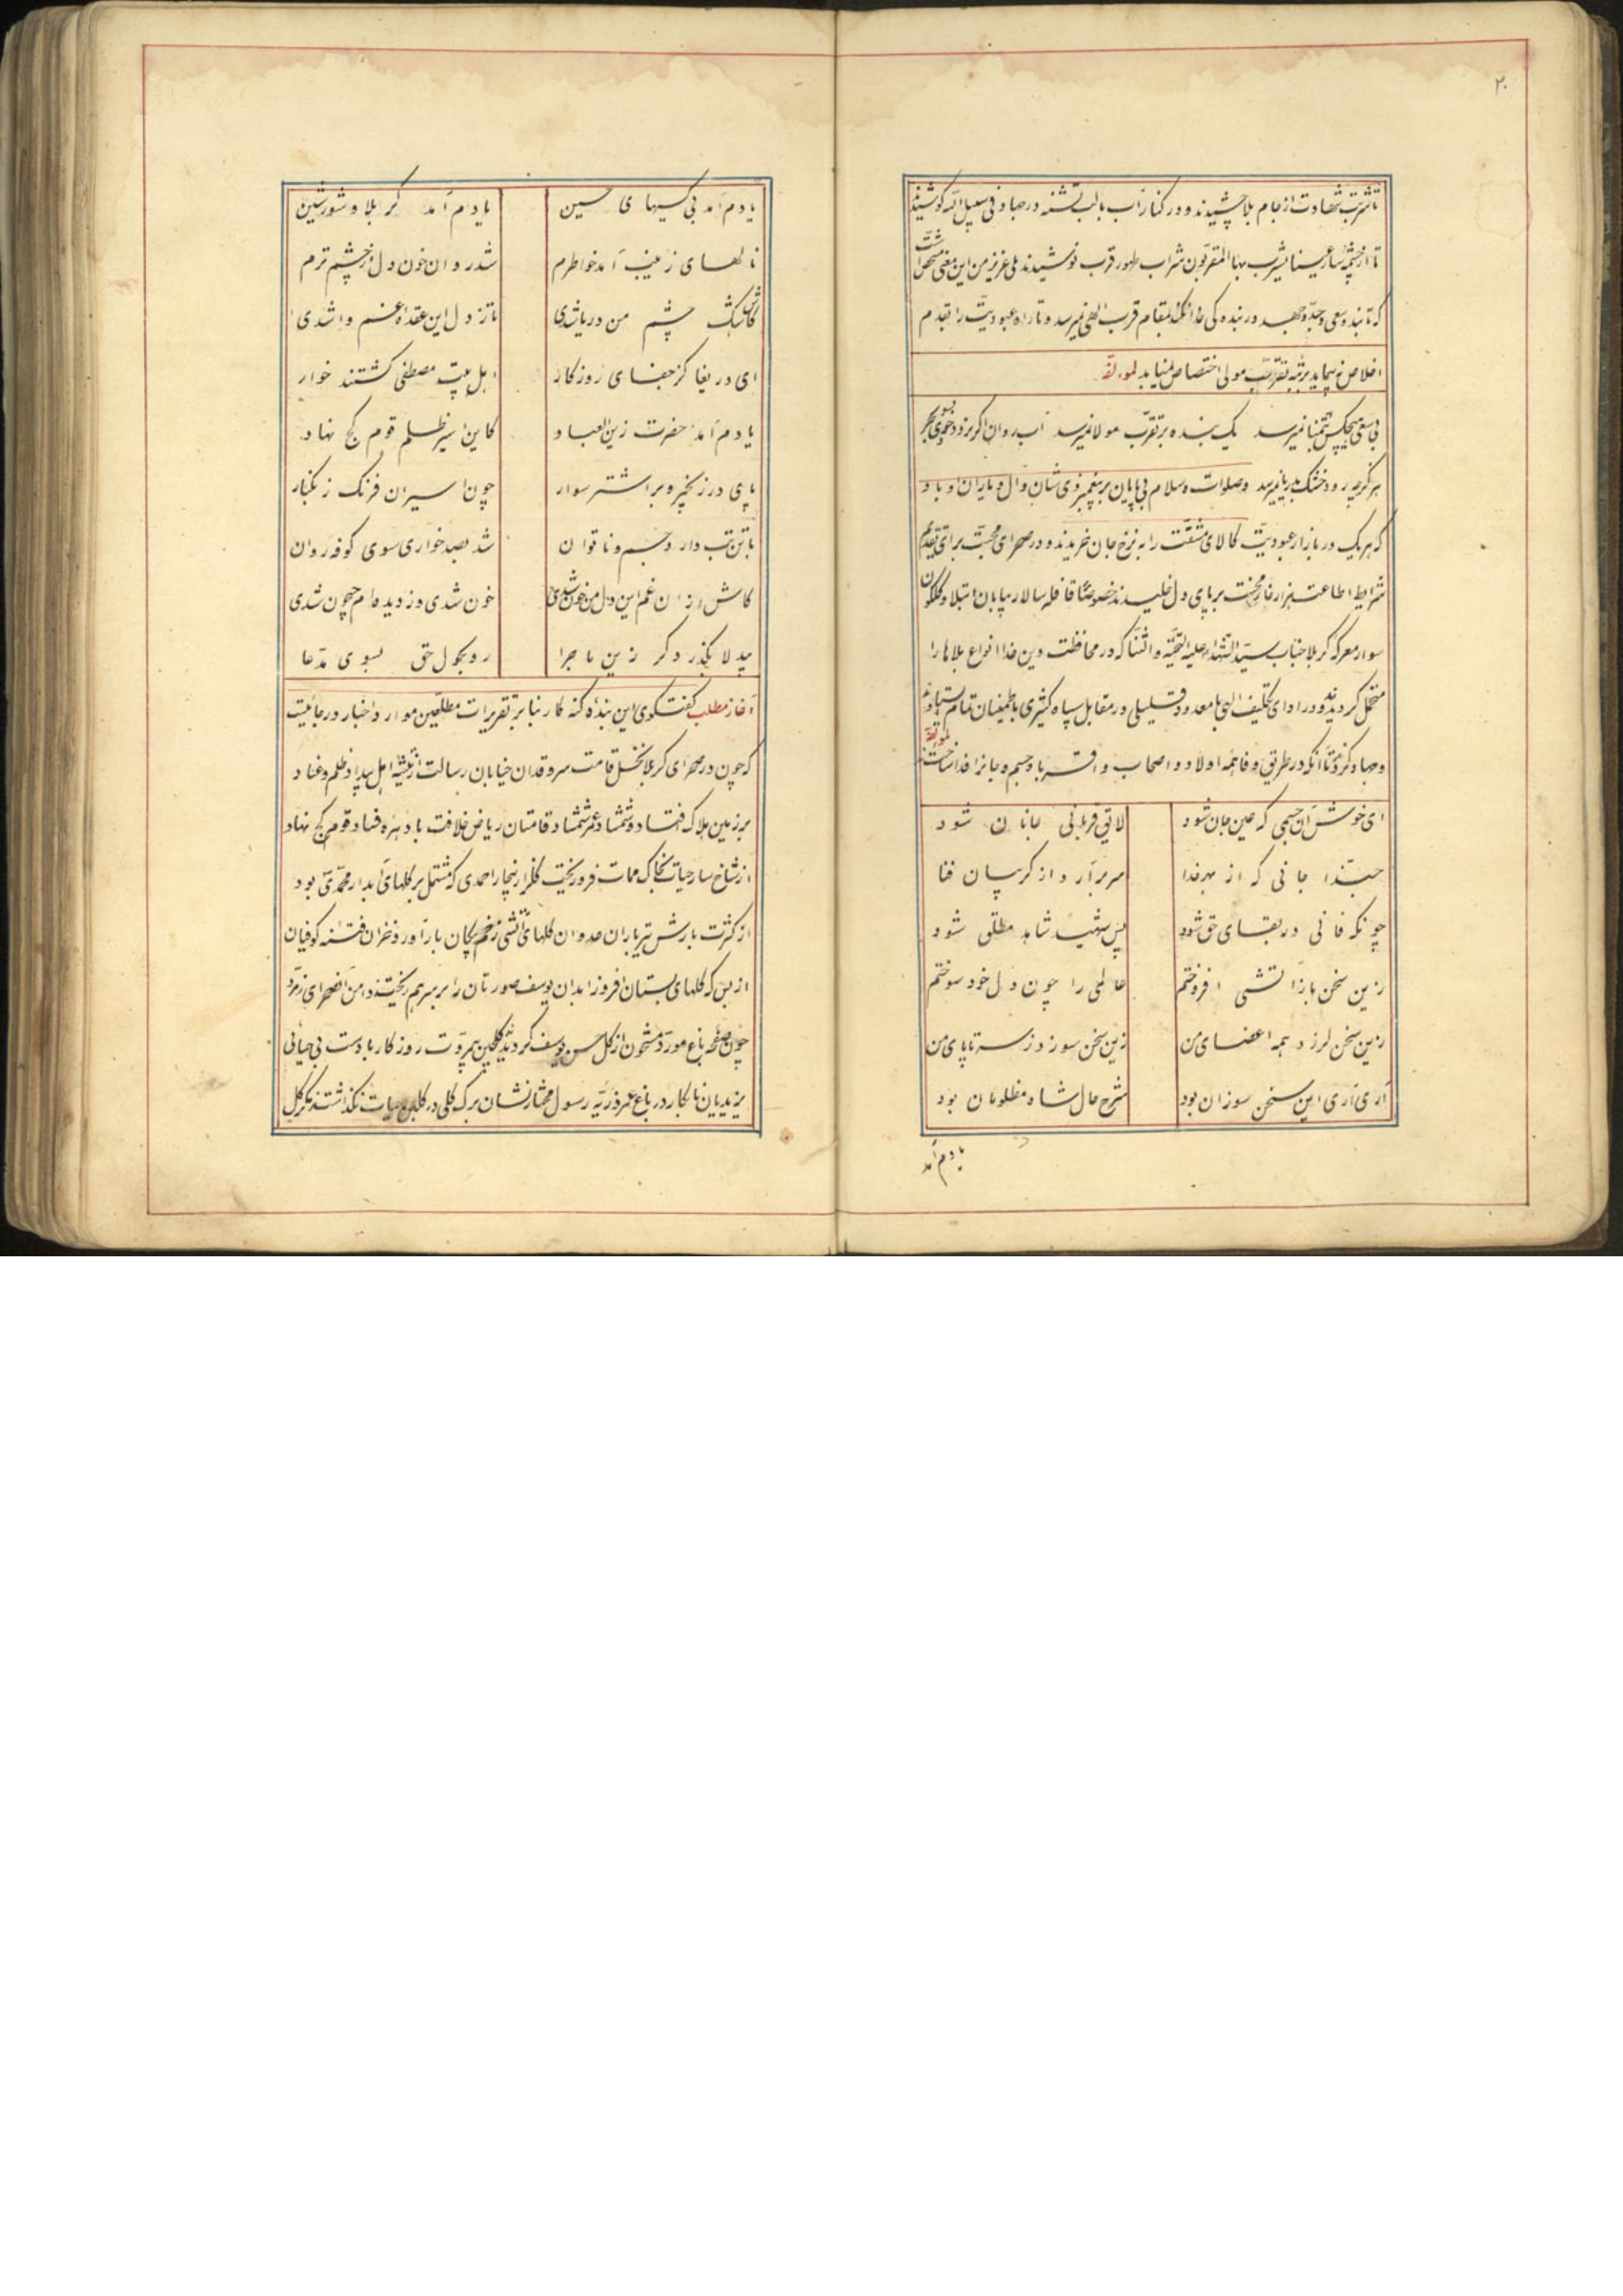 ۲۰
تا شربت شهادت از جام بلا چشیدند و در کنار آب با لب تشنه در جهاد فی سبیل الله کوشیدند
تا از چشمه سار عینا یشرب بها المقربون شراب طهور قرب نوشیدند بلی عزیز من این معنی مشخص است
که تا بنده سعی و جد و جهد در بندگی خدا نکند بمقام قرب الهی نمیرسد و تا راه عبودیت را بقدم
اخلاص نپیماید برتبه تقرب مولی اختصاص نمیابد لمولفه
بی سعی هیچکس بتمنا نمیرسد یک بنده بر تقرب مولا نمیرسد آب روان اگر نرود جوی بسوی بحر
هرگز بجوی رود خشک بدریا نمیرسد وصلوات و سلام بی پایان بر پیغمبر ذی شان و آل و یاران و باد
که هر یک در بازار عبودیت کالای مشقت را به نرخ جان خریدند و در صحرای محبت برای تقدیم
شرایط اطاعت هزار خار محنت بر پای دل خلیدند خصوصا قافله سالار بیابان ابتلا و گلگون
سوار معرکه کربلا جناب سید الشهداء علیه التحیة و الثنا که در محافظت دین خدا انواع بلاها را
متحمل گردیدند و در ادای تکلیف الهی با معدود قلیلی در مقابل سپاه کثیری باطمینان تمام ستاده
وجهاد کرد تا آنکه در طریق وفا همه اولاد و اصحاب و اقربا و جسم و جانرا فدا ساختند لمولفه
ای خوش آن جسمی که عین جان شود لایق قربانی جانان شود
حبذا جانی که از بهر خدا سر برآرد از گریبان فنا
چونکه فانی در بقای حق شود پس شهید شاهد مطلق شود
زین سخن باز آتشی افروختم عالمی را چون دل خود سوختم
زین سخن لرزد همه اعضای من زین سخن سوزد ز سر تا پای من
آری آری این سخن سوزان بود شرح حال شاه مظلومان بود
یادم آمد
یادم آمد بی کسیهای حسین یادم آمد کربلا و شور شین
نالهای زینب آمد خواطرم شد روان خون دل از چشم ترم
کاش اشک چشم من دریا شدی تا ز دل این عقده غم وا شدی
ای دریغا کز جفای روزگار اهل بیت مصطفی گشتند خوار
یادم آمد حضرت زین العباد کاین اسیر ظلم قوم کج نهاد
پای در زنجیر و بر اشتر سوار چون اسیران فرنگ زنگبار
با تن تب دار و جسم ناتوان شد بصد خواری سوی کوفه روان
کاش از آن غم این دل من خون شدی خون شدی وز دیده ام جیحون شدی
بیدلا بگذر دگر زین ماجرا رو بحول حق بسوی مدعا
آغاز مطلب گفتگوی این بنده گنه کار بنا بر تقریرات مطلعین موارد اخبار در جائیست
که چون در صحرای کربلا نخل قامت سرو قدان خیابان رسالت از تیشه اهل بیداد ظلم و عناد
بر زمین هلاک فتاد و شمشاد عمر شمشاد قامتان ریاض خلافت باد هزه فساد قوم کج نهاد
از شاخسار حیات بخاک ممات فرو ریخت گلزار بیخار احمدی که مشتمل بر گلهای آبدار محمدی بود
از کثرت بارش تیر باران عدوان گلهای آتشی زخم پیکان بار آورد خزان فتنه کوفیان
از بس که گلهای بستان افروز ابدان یوسف صورتان را بر سر هم ریختند دامن آن صحرای زمرد
چون صفحه باغ مورد مشحون از گل حسن یوسف گردید گلچین بیمروت روزگار با دست بی حیائی
یزیدیان نابکار در باغ عمر ذریه رسول مختار نشان برگ گلی در گلبن حیات نگذاشتند مگر گل